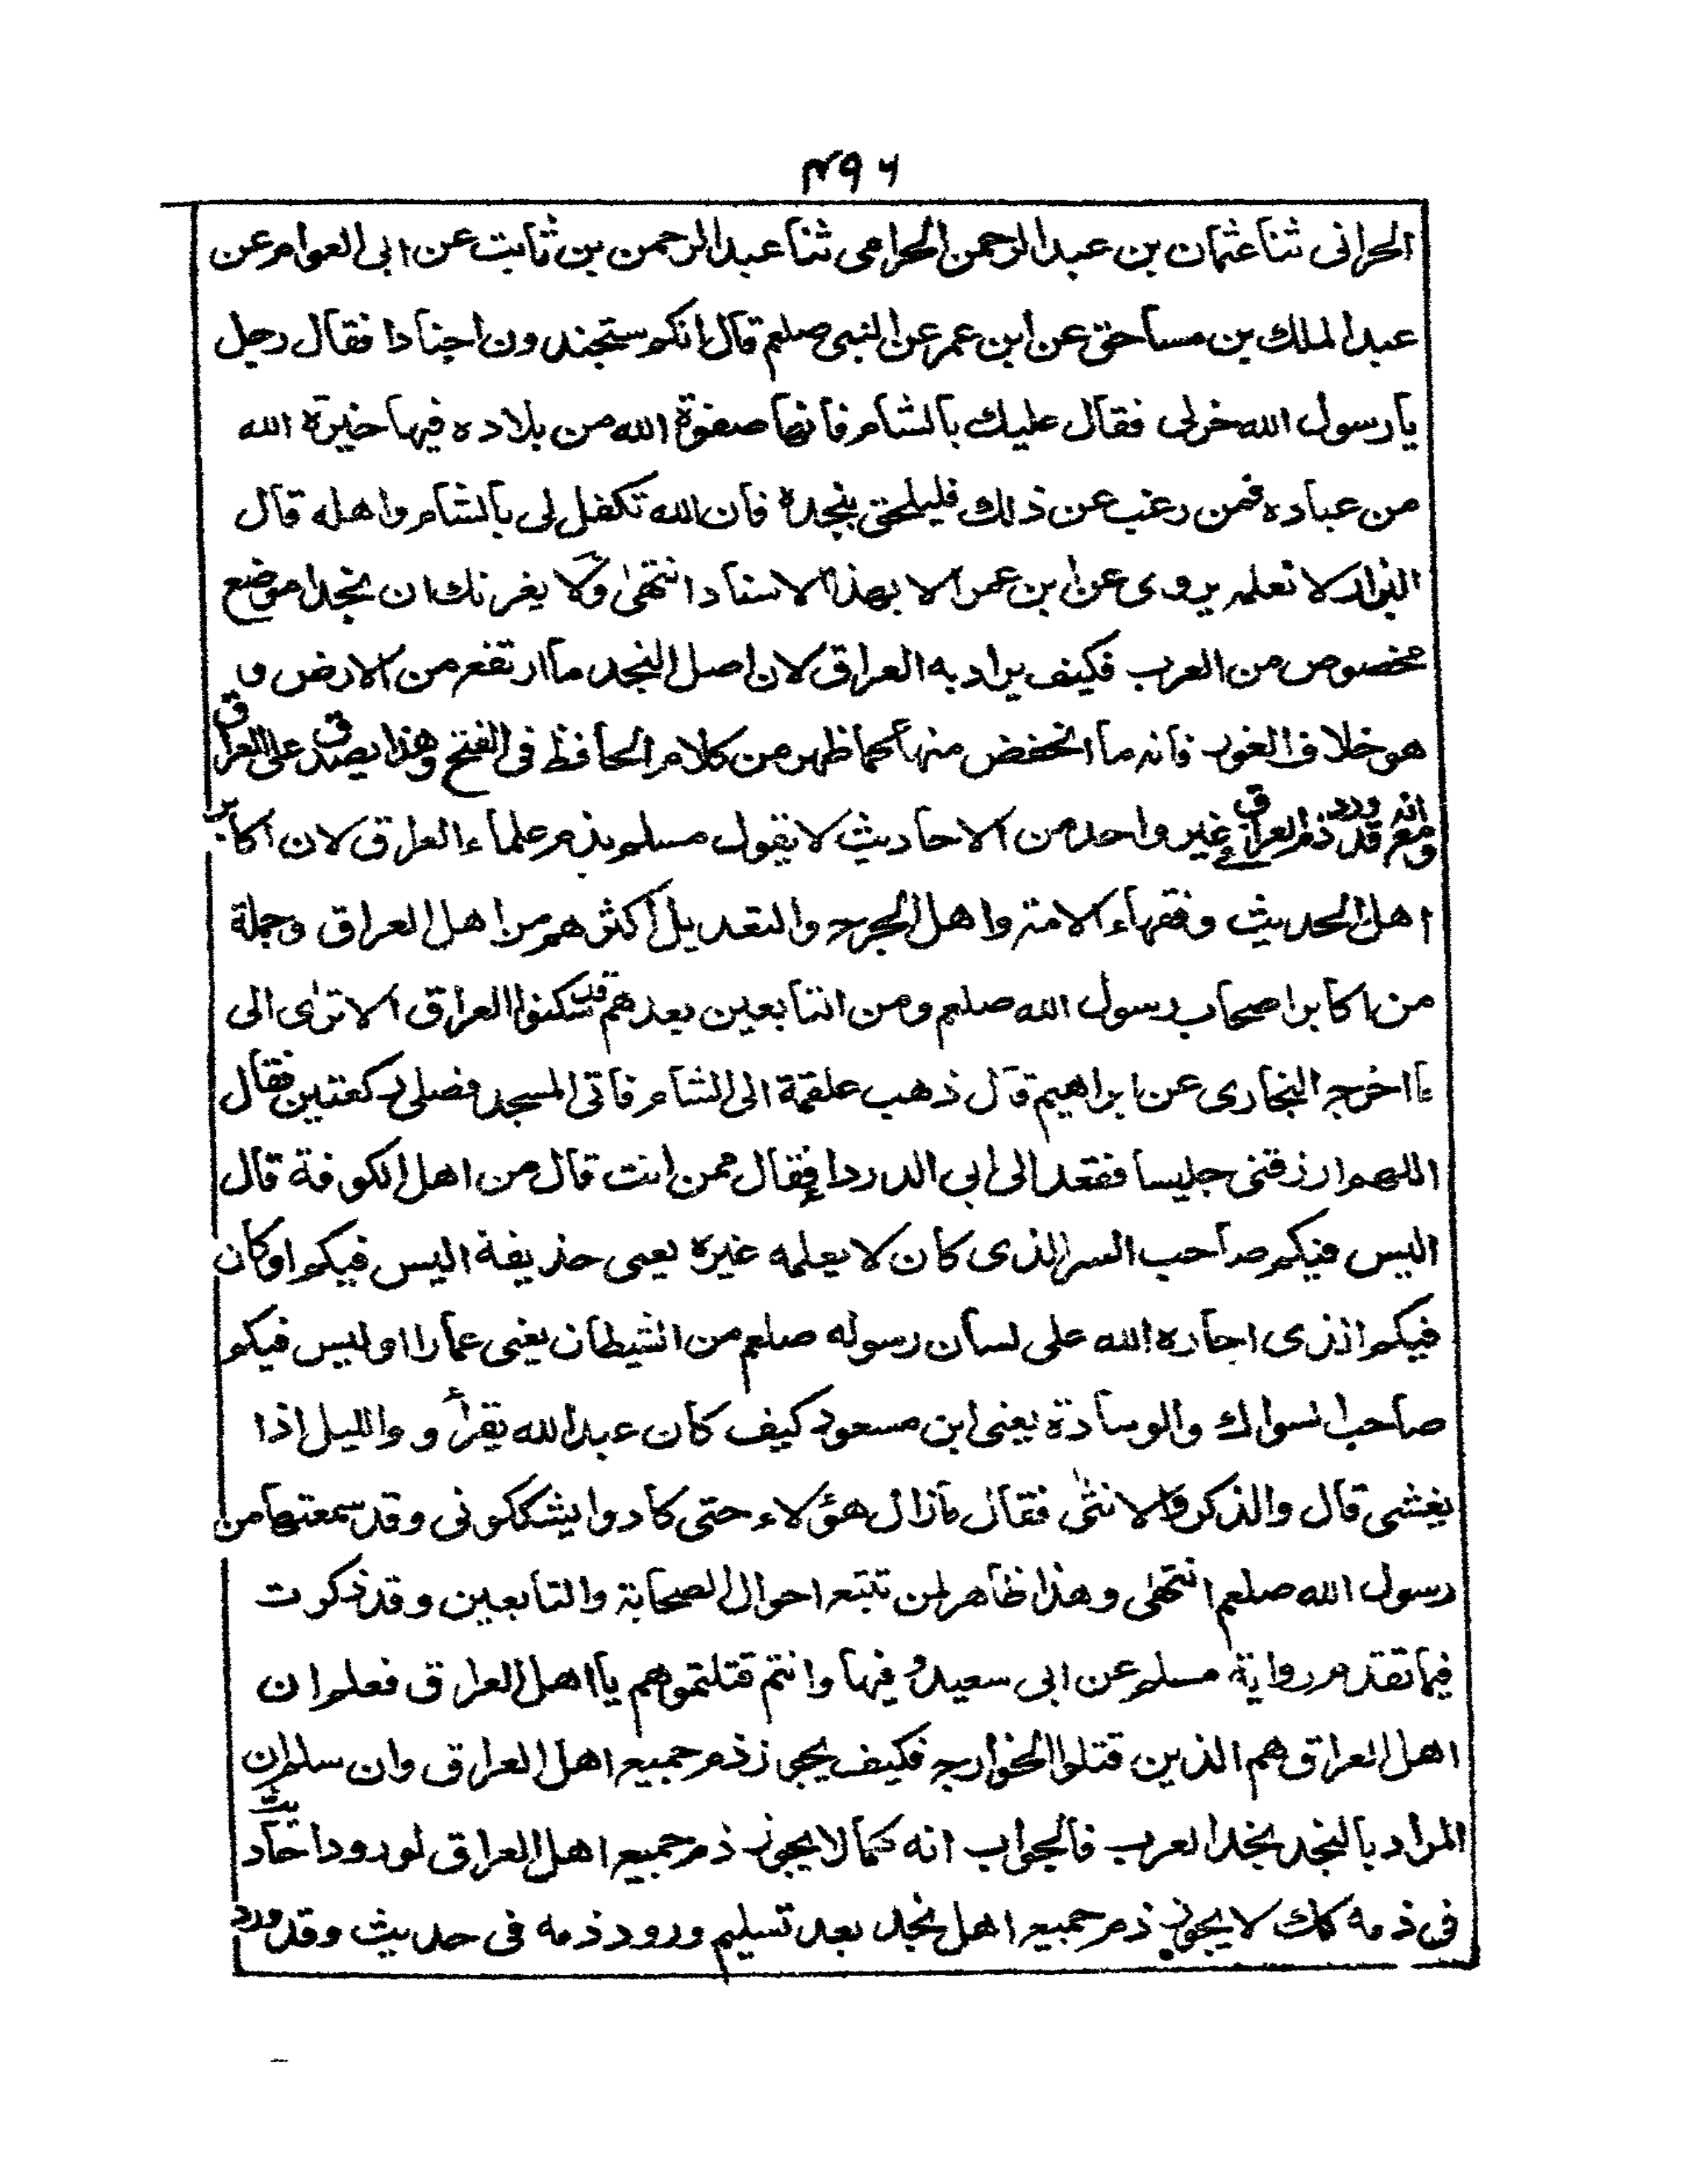 ۴۹۶
الحرانی ثنا عثمان بن عبدالرحمن الحرامی ثنا عبدالرحمن بن ثابت عن ابی العوام عن
عبدالملك بن مساحق عن ابن عمر عن النبی صلعم قال انكم ستجندون اجنادا فقال رجل
یا رسول الله خرلی فقال علیك بالشام فانها صفوة الله من بلاده فیها خیرة الله
من عباده فمن رغب عن ذلك فلیلحق بنجده فان الله تكفل لی بالشام واهله قال
البزار لا نعلمه یروی عن ابن عمر الا بهذا الاسناد انتهٰی ولا یغرنك ان نجدا موضع
مخصوص من العرب فكیف یراد به العراق لان اصل النجد ما ارتفع من الارض و
هو خلاف الغور فانه ما انخفض منها كما ظهر من كلام الحافظ فی الفتح وهذا یصدق علی العراق
ومع انه قد ورد ذم العراق فی غیر واحد من الاحادیث لا یقول مسلم بذم علماء العراق لان اكابر
اهل الحدیث وفقهاء الامة واهل الجرح والتعدیل اكثرهم من اهل العراق وجملة
من اكابر اصحاب رسول الله صلعم ومن التابعین بعدهم قد سكنوا العراق الا ترٰی الی
ما اخرج البخاری عن ابراهیم قال ذهب علقمة الی الشام فاتی المسجد فصلی ركعتین فقال
اللهم ارزقنی جلیسا فقعد الی ابی الدرداء فقال ممن انت قال من اهل الكوفة قال
الیس فیكم صاحب السر الذی كان لا یعلمه غیره یعنی حذیفة الیس فیكم او كان
فیكم الذی اجاره الله علی لسان رسوله صلعم من الشیطان یعنی عمارا اولیس فیكم
صاحب السواك والوسادة یعنی ابن مسعود كیف كان عبدالله یقرأ و واللیل اذا
یغشی قال والذكر والانثٰی فقال مازال هؤلاء حتی كادوا یشككونی وقد سمعتها من
رسول الله صلعم انتهٰی وهذا ظاهر لمن تتبع احوال الصحابة والتابعین وقد ذكرت
فیما تقدم روایة مسلم عن ابی سعید و فیها وانتم قتلتموهم یا اهل العراق فعلم ان
اهل العراق هم الذین قتلوا الخوارج فكیف یجوز ذم جمیع اهل العراق وان سلم ان
المراد بالنجد نجد العرب فالجواب انه كما لا یجوز ذم جمیع اهل العراق لورود احادیث
فی ذمه كك لا یجوز ذم جمیع اهل نجد بعد تسلیم ورود ذمه فی حدیث وقد ورد